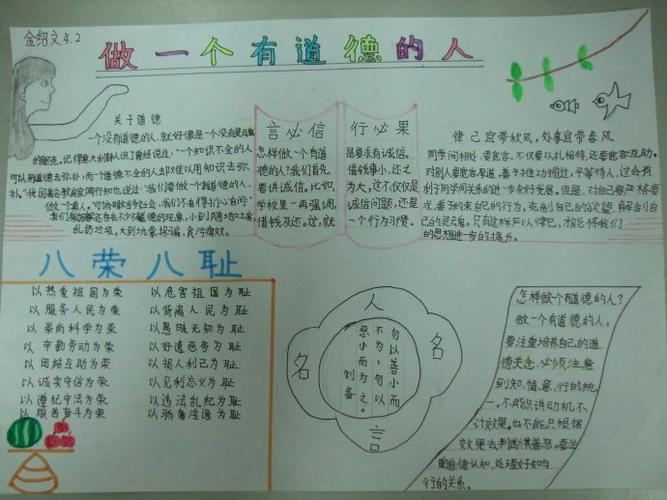 金绍文4.2
做一个有道德的人
关于道德
一个没有道德的人,就好像是一个没有灵魂
的躯壳。记得意大利诗人但丁曾经说过:“一个知识不全的人
可以用道德去弥补,而一个道德不全的人却难以用知识去弥
补。”我国著名教育家陶行知也说过:“我们要做一个有道德的人,
做一个真人,
我们周围还存在不少不道德的现象,小到随地吐痰
乱扔垃圾,大到坑蒙拐骗,贪污腐败。
言必信
怎样做一个有道
德的人?我们首先
要讲诚信。比如,
学校里一再强调,
借钱及还。这,就
行必果
是要求有诚信。
借钱事小,还之
为大,这不仅仅是
诚信问题,还是
一个行为习惯。
律己宜带秋风,处事宜带春风
同学间相处,要宽容,不仅要以礼相待,还要宽容互助。
对别人要宽厚厚道,善于推功揽过,平等待人,这会有
利于同学间关系的进一步友好发展。但是,对自己要严格要
求,善于约束自己的行为,克制自己的欲望,解剖自
己的灵魂。只有这样严以律己,才能够我们
的思想进一步的提升。
八荣八耻
以热爱祖国为荣 以危害祖国为耻
以服务人民为荣 以背离人民为耻
以崇尚科学为荣 以愚昧无知为耻
以辛勤劳动为荣 以好逸恶劳为耻
以团结互助为荣 以损人利己为耻
以诚实守信为荣 以见利忘义为耻
以遵纪守法为荣 以违法乱纪为耻
以艰苦奋斗为荣 以骄奢淫逸为耻
名
人
名
言
勿以善小而
不为,勿以
恶小而为之。
刘备
怎样做个有道德的人?
做一个有道德的人,
要注重培养自己的道
德夫念,必须注意
到知、情意、行的统
一。不能只讲动机不
计效果。也不能只根据
效果去判断其善恶。要注
重道德认知,处理好知与
行的关系。